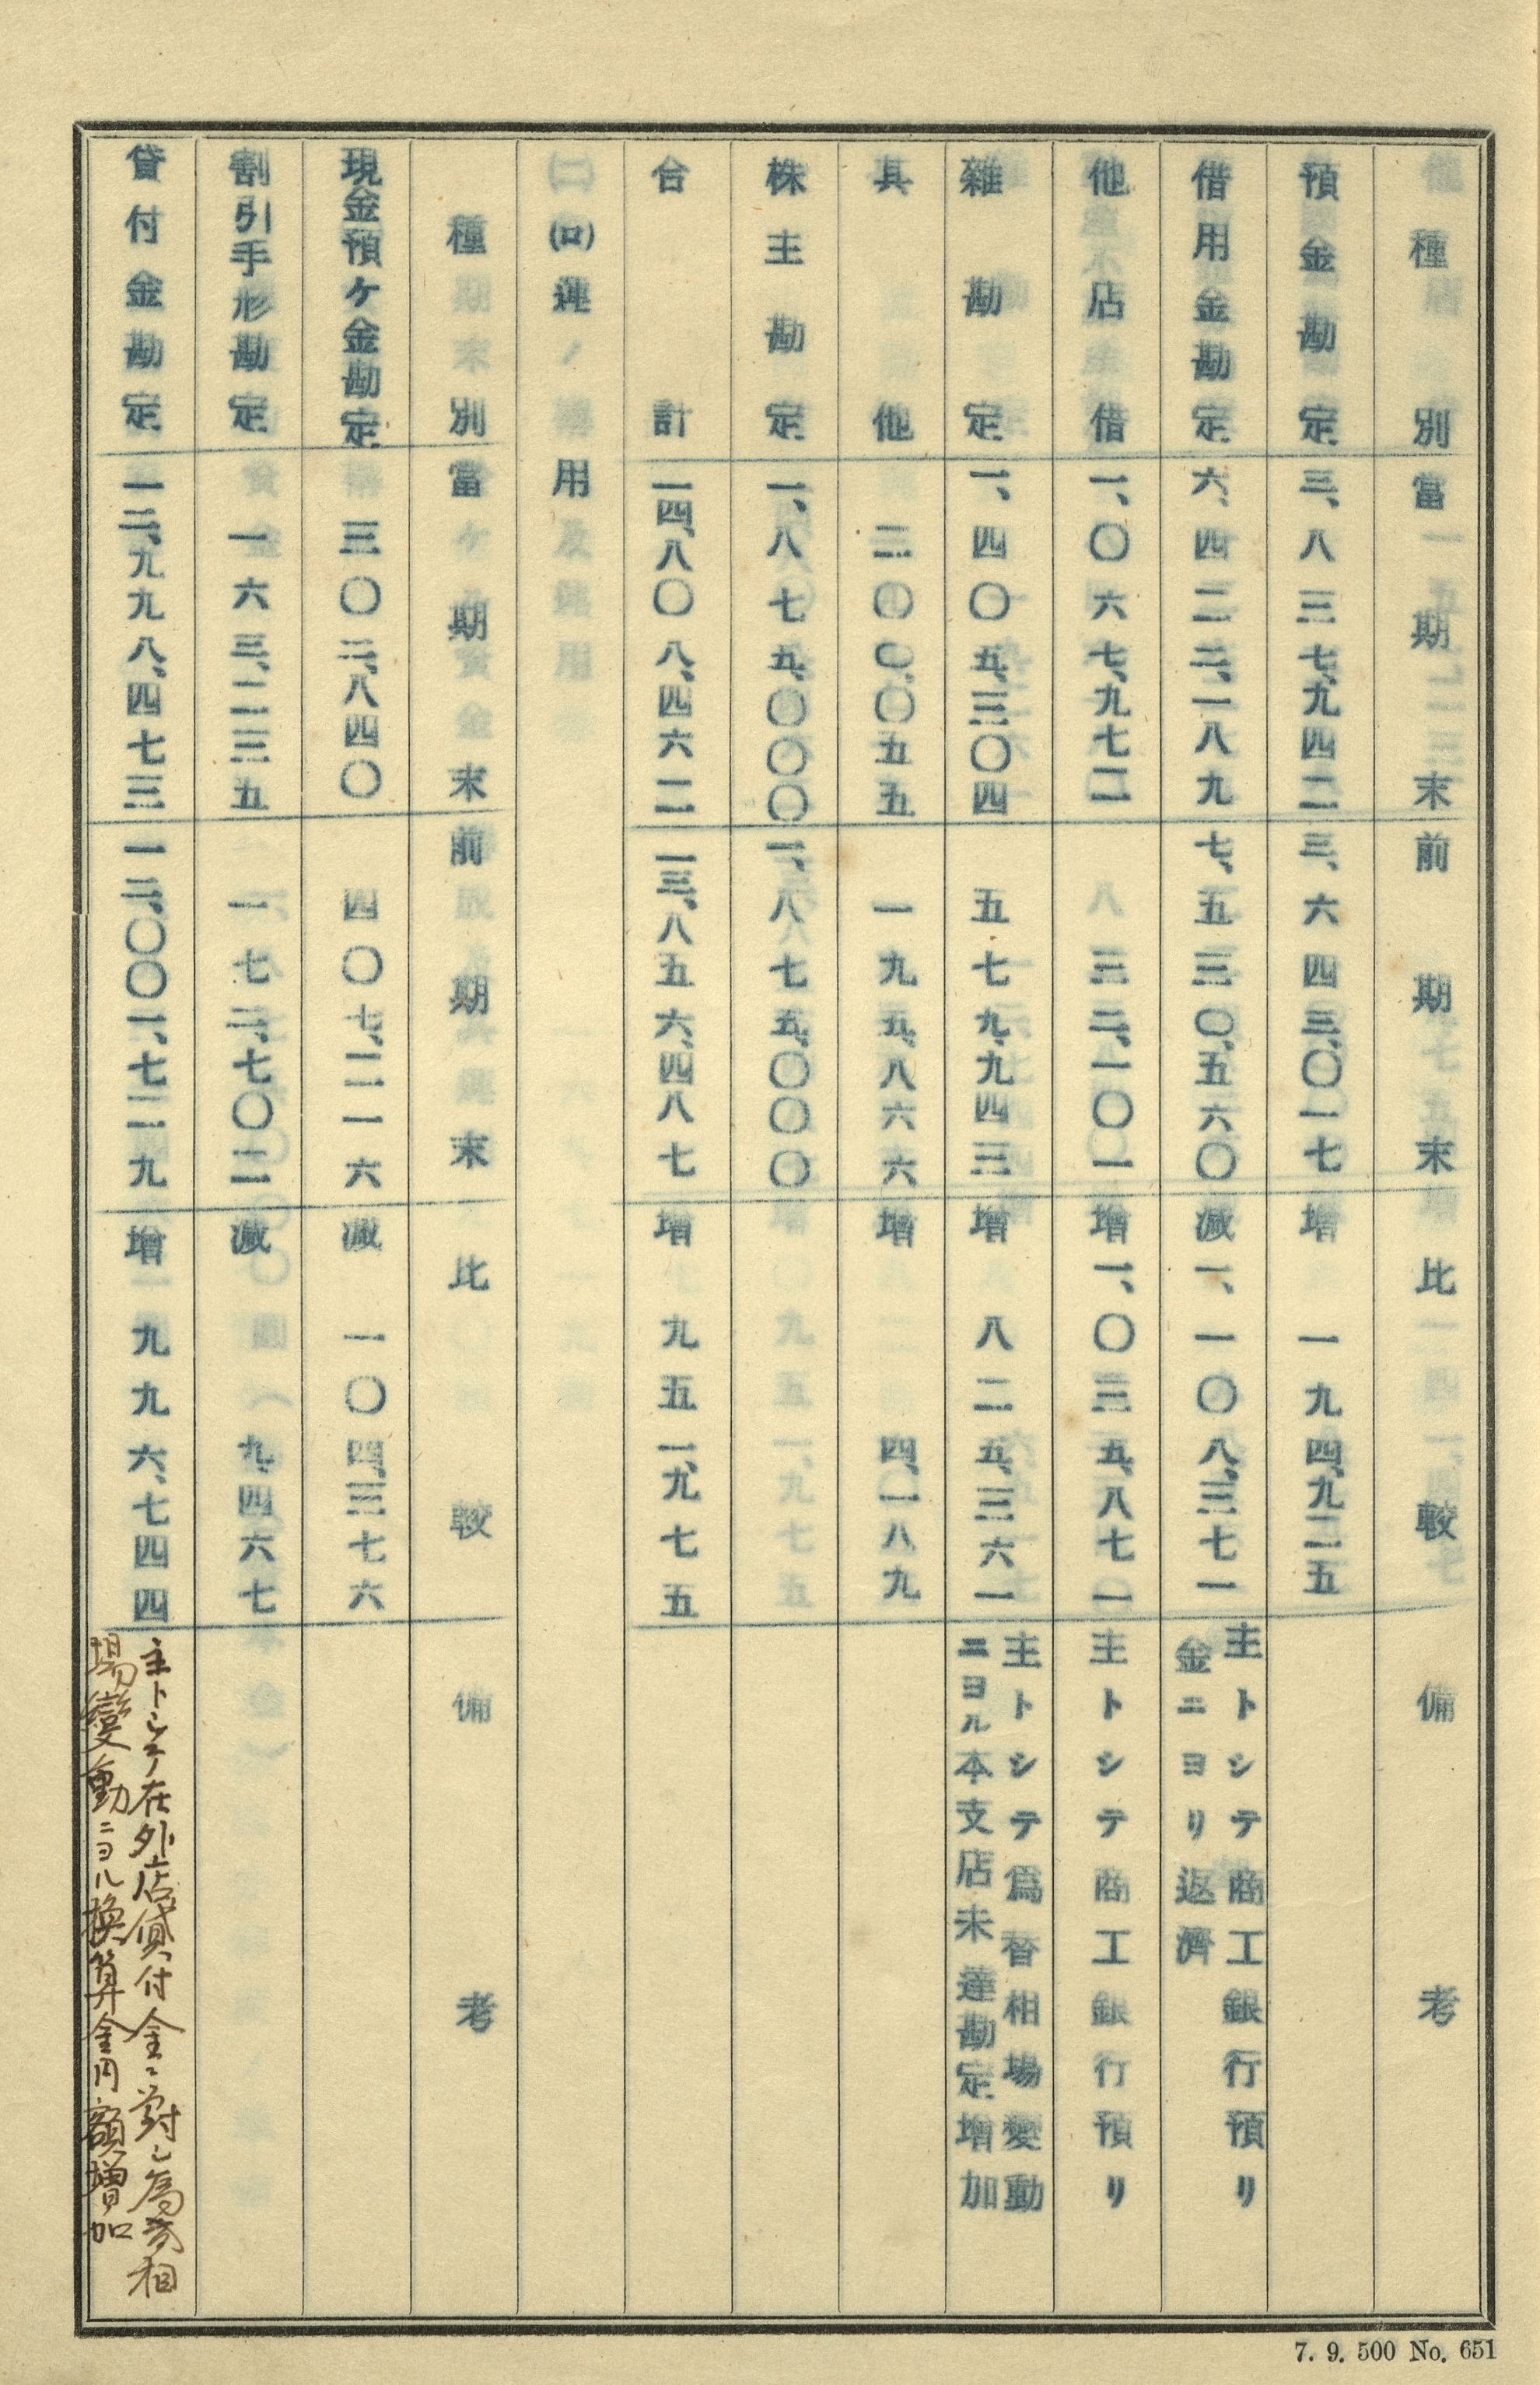 種別 當期末 前期末 比較 備考
預金勘定 三、八三七、九四二 三、六四三、〇一七 增 一九四、九二五
借用金勘定 六、四二二、一八九 七、五三〇、五六〇 減 一、一〇八、三七一 主トシテ商工銀行預リ
金ニヨリ返濟
他店借 一、〇六七、九七二 三二、一〇一 增 一、〇三五、八七一 主トシテ商工銀行預リ
雜勘定 一、四〇五、三〇四 五七九、九四三 增 八二五、三六一 主トシテ爲替相場變動
ニヨル本支店未達勘定增加
其他 二〇〇、〇五五 一九五、八六六 增 四、一八九
株主勘定 一、八七五、〇〇〇 一、八七五、〇〇〇
合計 一四、八〇八、四六二 一三、八五六、四八七 增 九五一、九七五
(ロ)運用
種別 當期末 前期末 比較 備考
現金預ケ金勘定 三〇二、八四〇 四〇七、二一六 減 一〇四、三七六
割引手形勘定 一六三、二三五 一七二、七〇二 減 九、四六七
貸付金勘定 一二、九九八、四七三 一二、〇〇一、七二九 增 九九六、七四四 主トシテ在外店貸付金ニ對シ為替相
場變動ニヨル換算金円額増加
7. 9. 500 No. 651